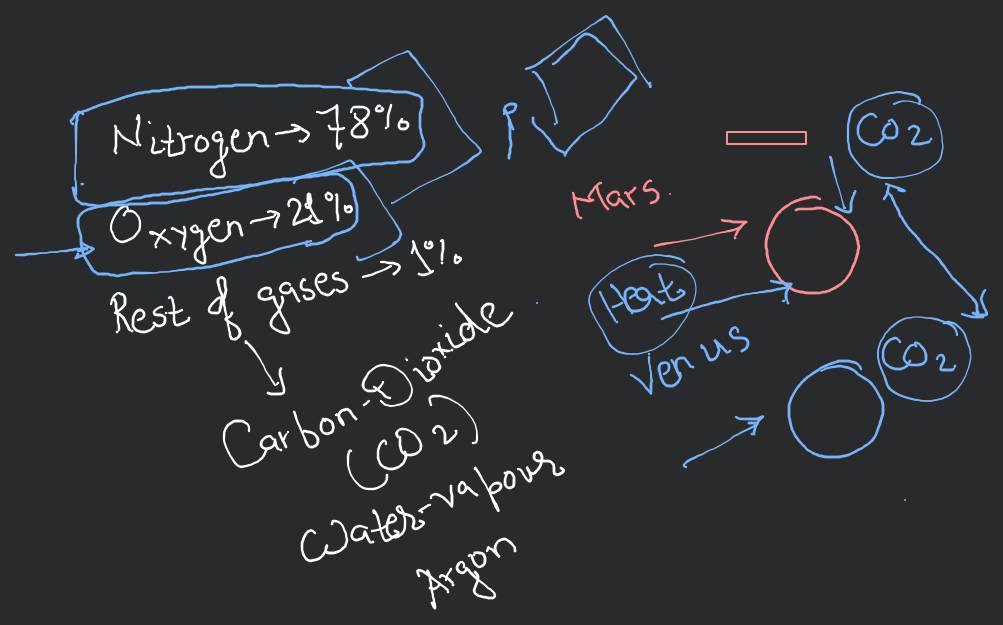 Nitrogen → 78%
Oxygen → 21%
Rest of gases → 1%
Carbon-Dioxide
(CO2)
Water-vapour
Argon
CO2
Mars.
Heat
Venus
CO2